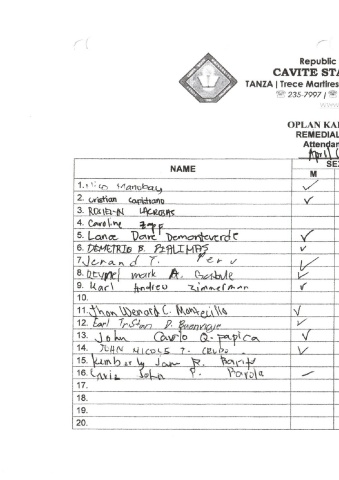 Republic
CAVITE STA
TANZA | Trece Martires
☏ 235-7997 | ☏
www
OPLAN KAL
REMEDIAL
Attendan
April
NAME
SE
M
1. Nico Manubay ✓
2. Cristian Capistrano ✓
3. LACROBAS
4. Caroline
5. Lance Dave Demonteverde ✓
6. DEMETRIO B. ✓
7. Jerand T. ✓
8. mark A. ✓
9. Karl Andrew Zimmerman ✓
10.
11. Jhon Wenard C. Montecillo ✓
12. Earl Tristan D. Buenviaje ✓
13. John Carlo Q. papica ✓
14. JUAN NICOLS T. ✓
15. Kimberly Jam R.
16. John P. Parola
17.
18.
19.
20.